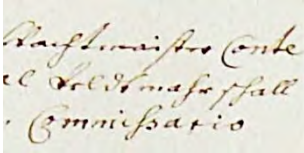 Wachtmaister Conte
al Veldtmahrschall
Commissario